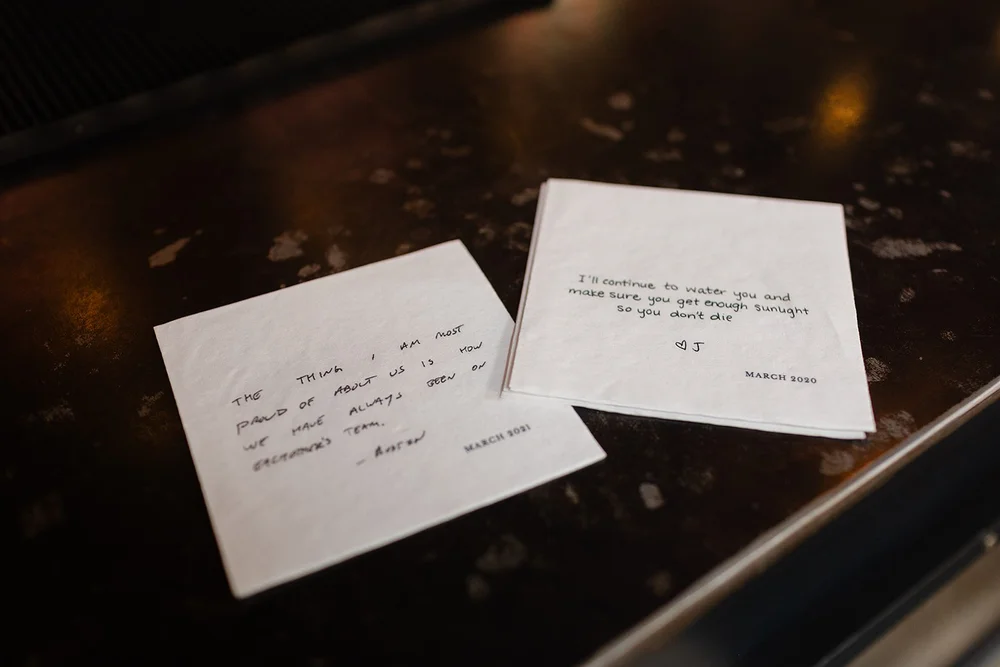 THE THING I AM MOST
PROUD OF ABOUT US IS HOW
WE HAVE ALWAYS BEEN ON
EACHOTHER'S TEAM.
MARCH 2021
I'll continue to water you and
make sure you get enough sunlight
so you don't die
♡ J
MARCH 2020